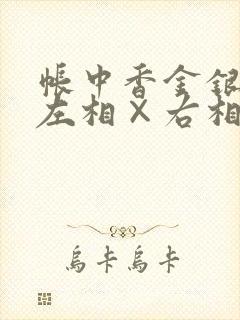 帳中香金銀
左相×右相
烏卡烏卡